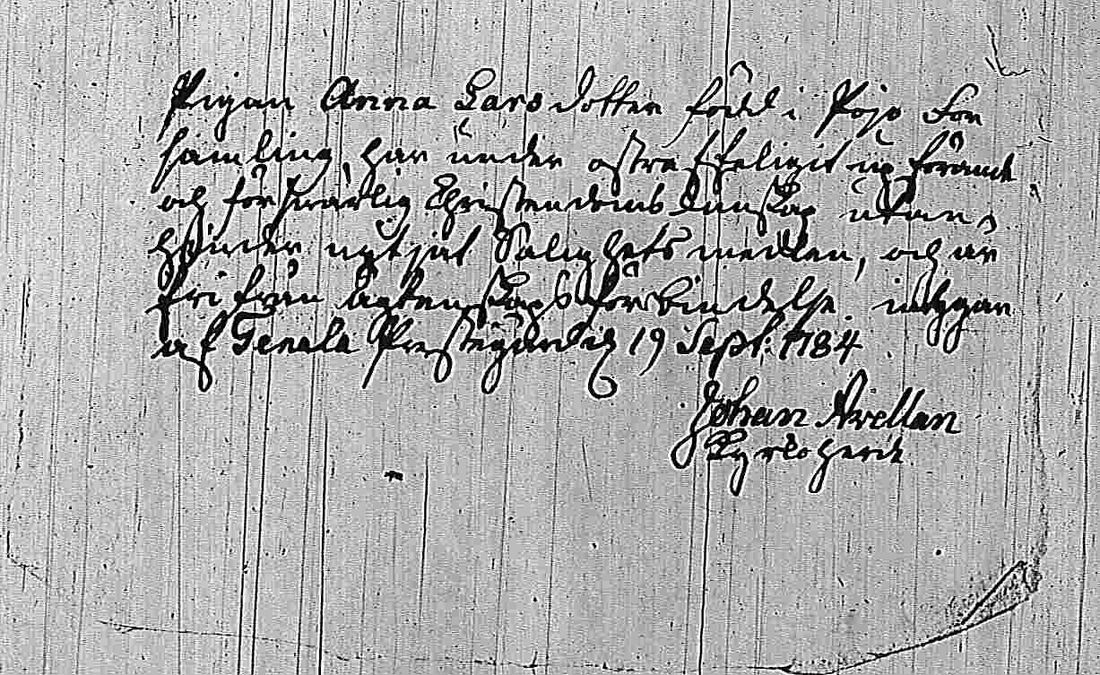 Pigan Anna Larsdotter född i Pojo För
samling, har under ostraffeligit upförande
och försvarlig Christendoms kunskap utan
hinder nytjat Salighets medlen, och är
fri från ägtenskaps förbindelse, intygar
af Tenala Prestegård d. 19 Sept. 1784.
Johan Avellan
Kyrkoherde